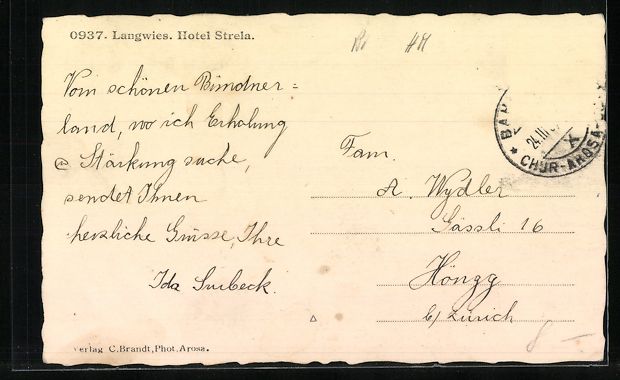 0937. Langwies. Hotel Strela.
Vom schönen Bündner=
land, wo ich Erholung
& Stärkung suche,
sendet Ihnen
herzliche Grüsse, Ihre
Ida Surbeck.
Fam.
A. Wydler
Gässli 16
Höngg
b/ Zürich
BAH
24.III
X
* CHUR-AROSA
Verlag C. Brandt, Phot. Arosa.